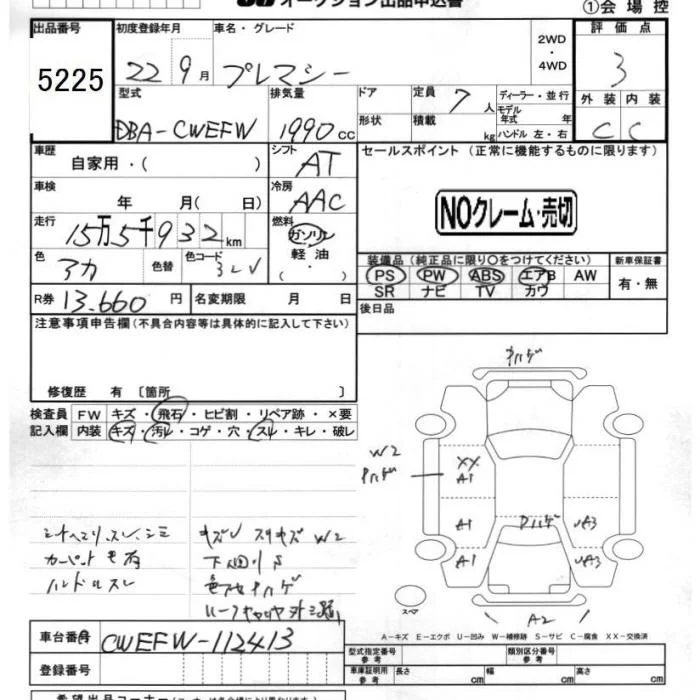 オークション出品申込書
①会場控
出品番号 初度登録年月 車名・グレード 2WD・4WD 評価点
5225 22 9月 プレマシー 3
型式 排気量 ドア 定員 7人 ディーラー・並行 外装 内装
DBA-CWEFW 1990cc 形状 積載 kg モデル年式 年 ハンドル 左・右 C C
車歴 自家用・( ) シフト AT セールスポイント (正常に機能するものに限ります)
車検 年 月( 日) 冷房 AAC NOクレーム・売切
走行 15万5千932km 燃料 ガソリン 軽油 ( ・ )
装備品 (純正品に限り○をつけてください) 新車保証書
色 アカ 色替 色コード PS PW ABS エアB AW 有・無
SR ナビ TV カワ
R券 13.660円 名変期限 月 日 後日品
注意事項申告欄(不具合内容等は具体的に記入して下さい)
修復歴 有 [箇所 ]
検査員 FW キズ・飛石・ヒビ割・リペア跡・×要
記入欄 内装 キズ・汚レ・コゲ・穴・スレ・キレ・破レ
オハゲ
W2
オハゲ
XX
A1
A1
A3
A1
A3
ハンドルスレ
スペア
A2
A-キズ E-エクボ U-凹み W-補修跡 S-サビ C-腐食 XX-交換済
車台番号 CWEFW-112413
型式指定番号 参考 類別区分番号 参考
登録番号 車庫証明用 参考 長さ cm 幅 cm 高さ cm
希望出品コーナー